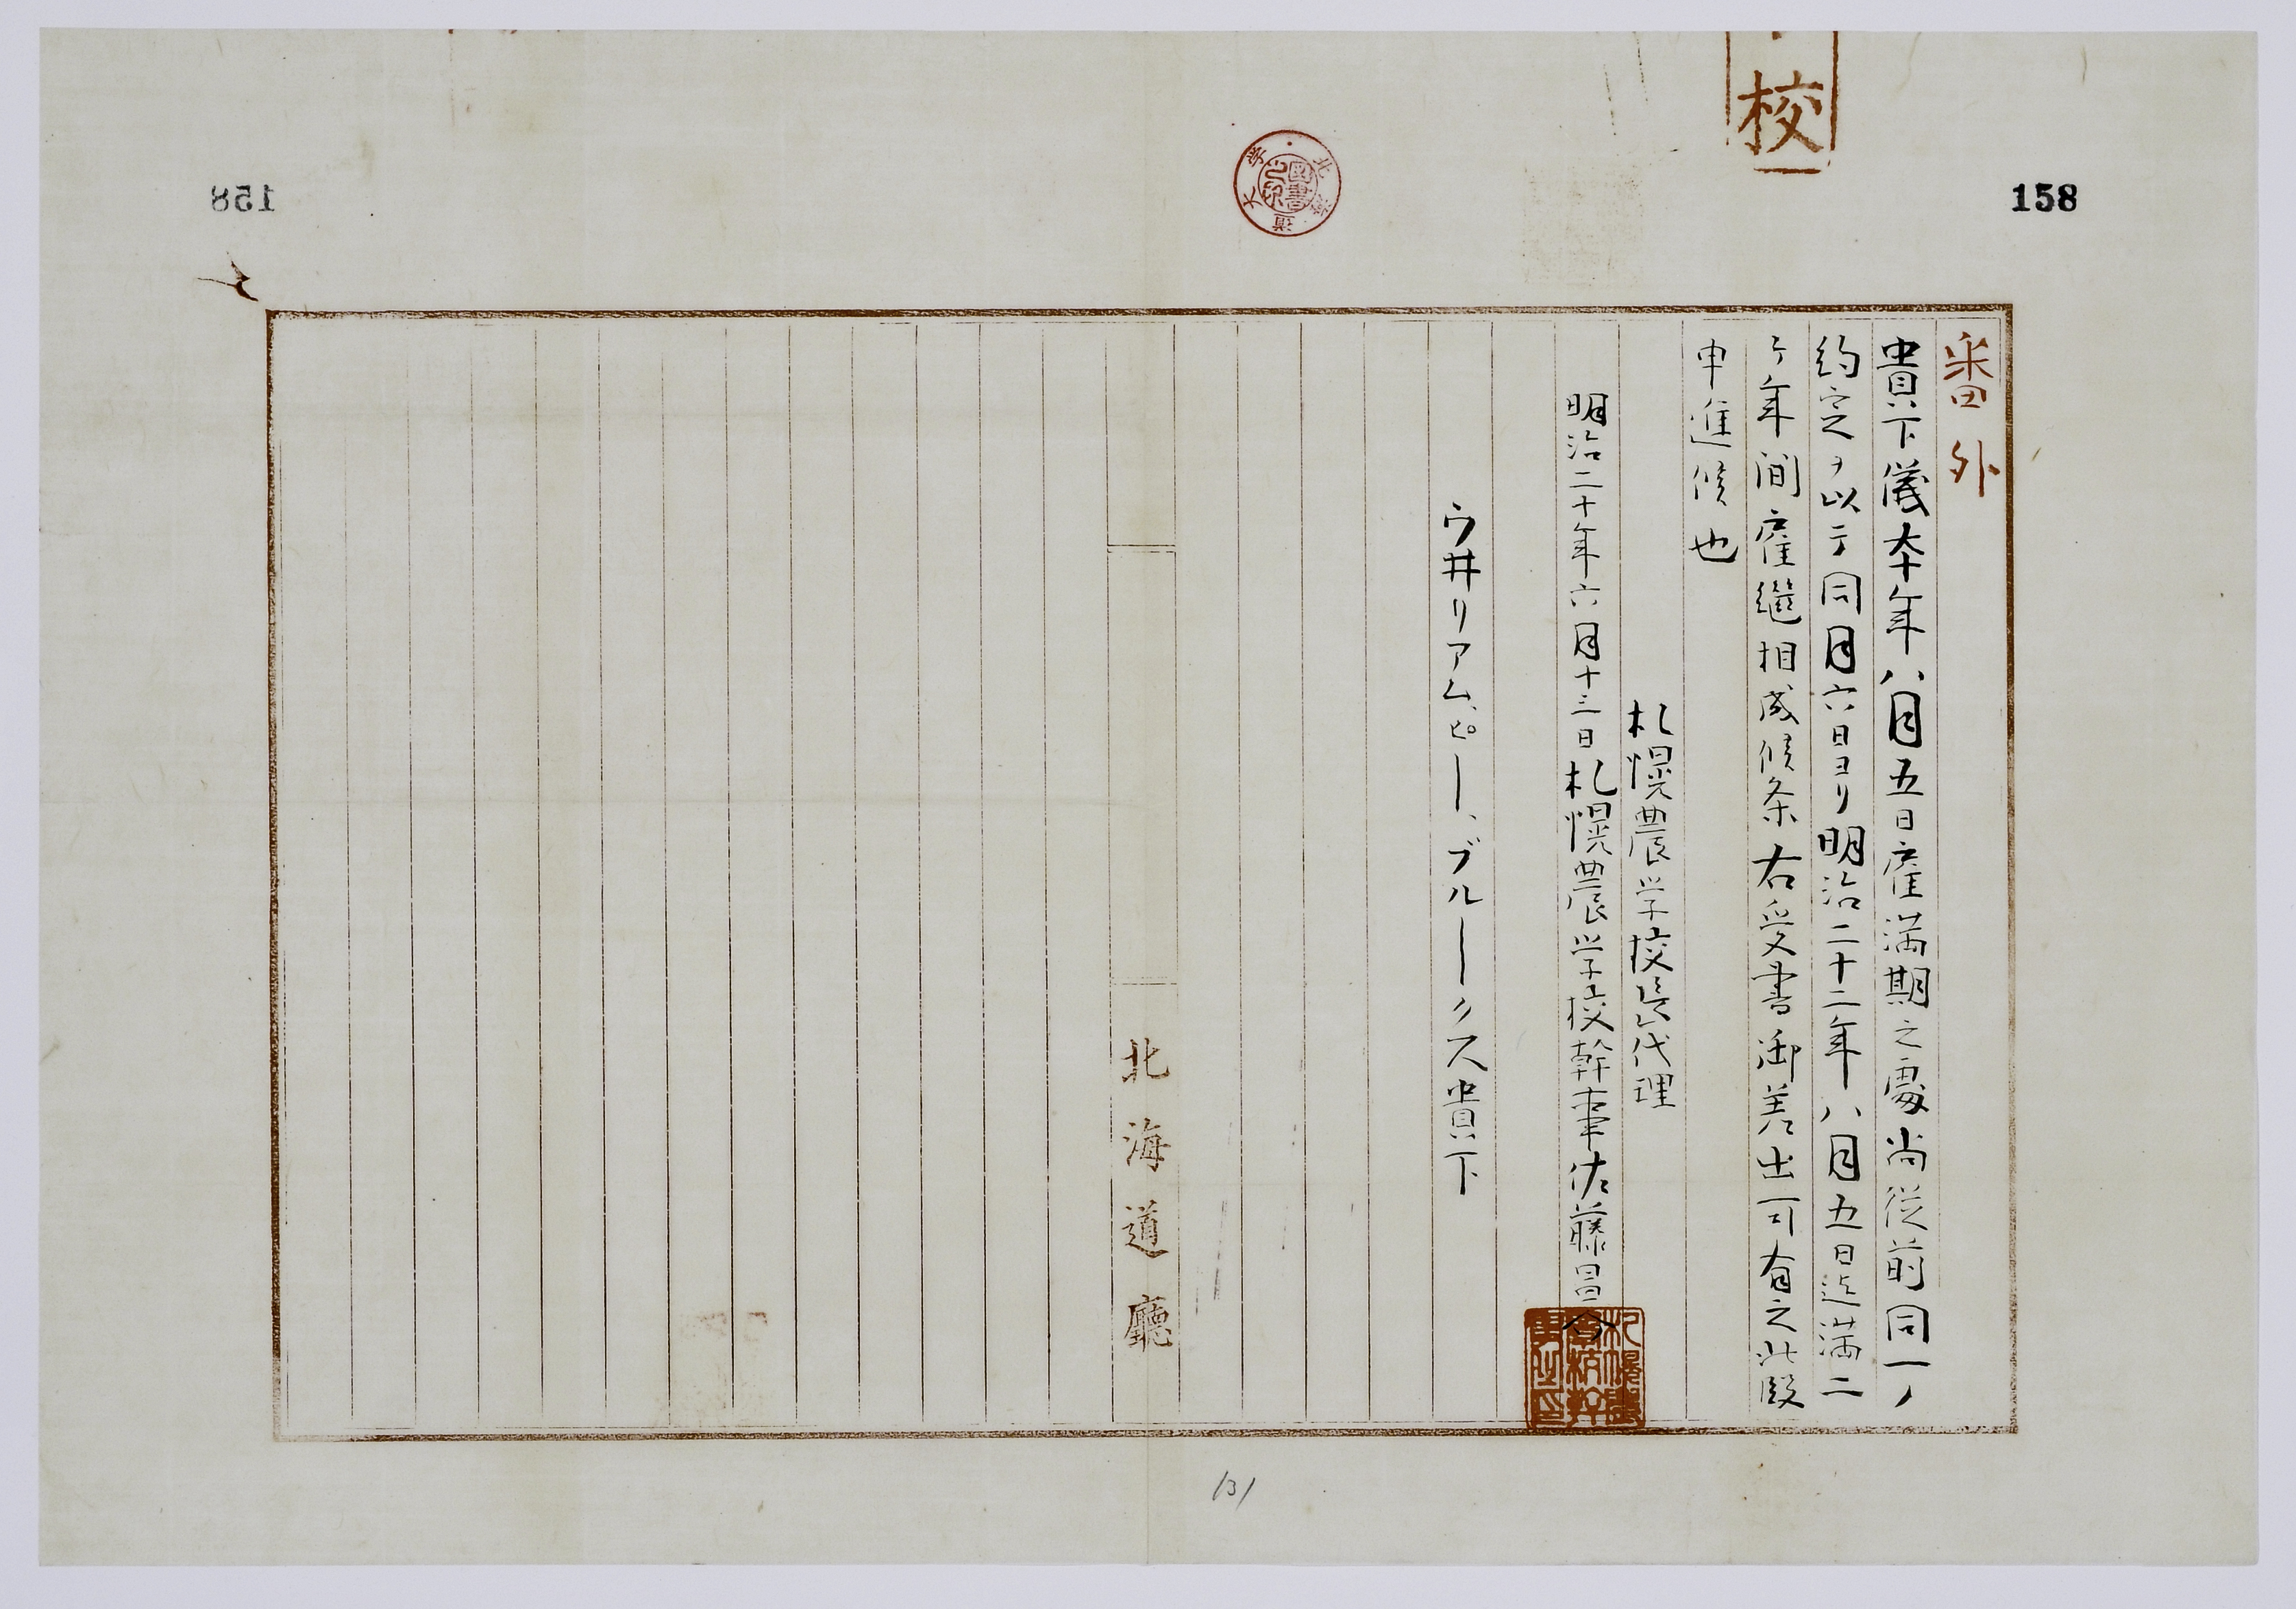 校
158
番外
貴下儀本年八月五日雇満期之處尚従前同一ノ
約定ヲ以テ同月六日ヨリ明治二十二年八月五日迄満二
ケ年間雇継相成候条右受書御差出可有之此段
申進候也
札幌農学校長代理
明治二十年六月十三日札幌農学校幹事佐藤昌介
札幌農学校幹事之印
ウ井リアム、ピー、ブルークス貴下
北海道廳
北海道大学
図書
131